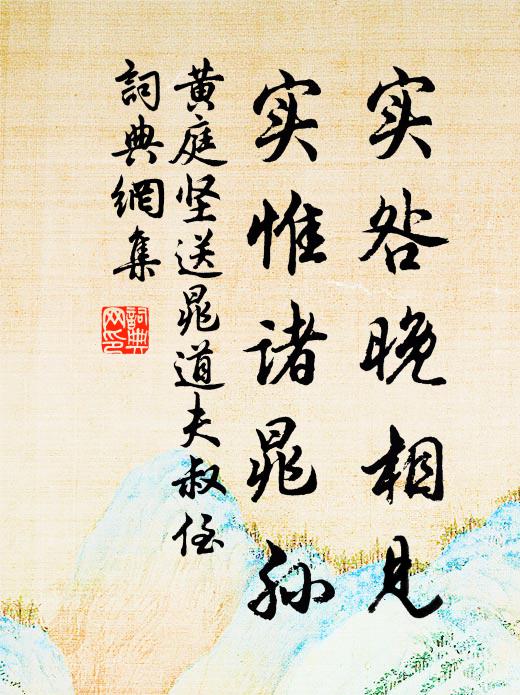 实咎晚相见
实惟诸晁孙
黄庭坚送晁道夫叔侄
词典網集
詞典网印